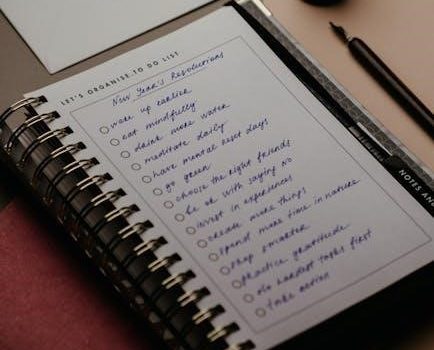 LET'S ORGANISE. TO DO LIST
New Year's Resolutions
wake up earlier
eat mindfully
drink more water
meditate daily
have mental reset days
go green
choose the right friends
be ok with saying no
invest in experiences
create more things
spend more time in nature
shop smarter
practice gratitude
do hardest tasks first
take action
NOTES AN